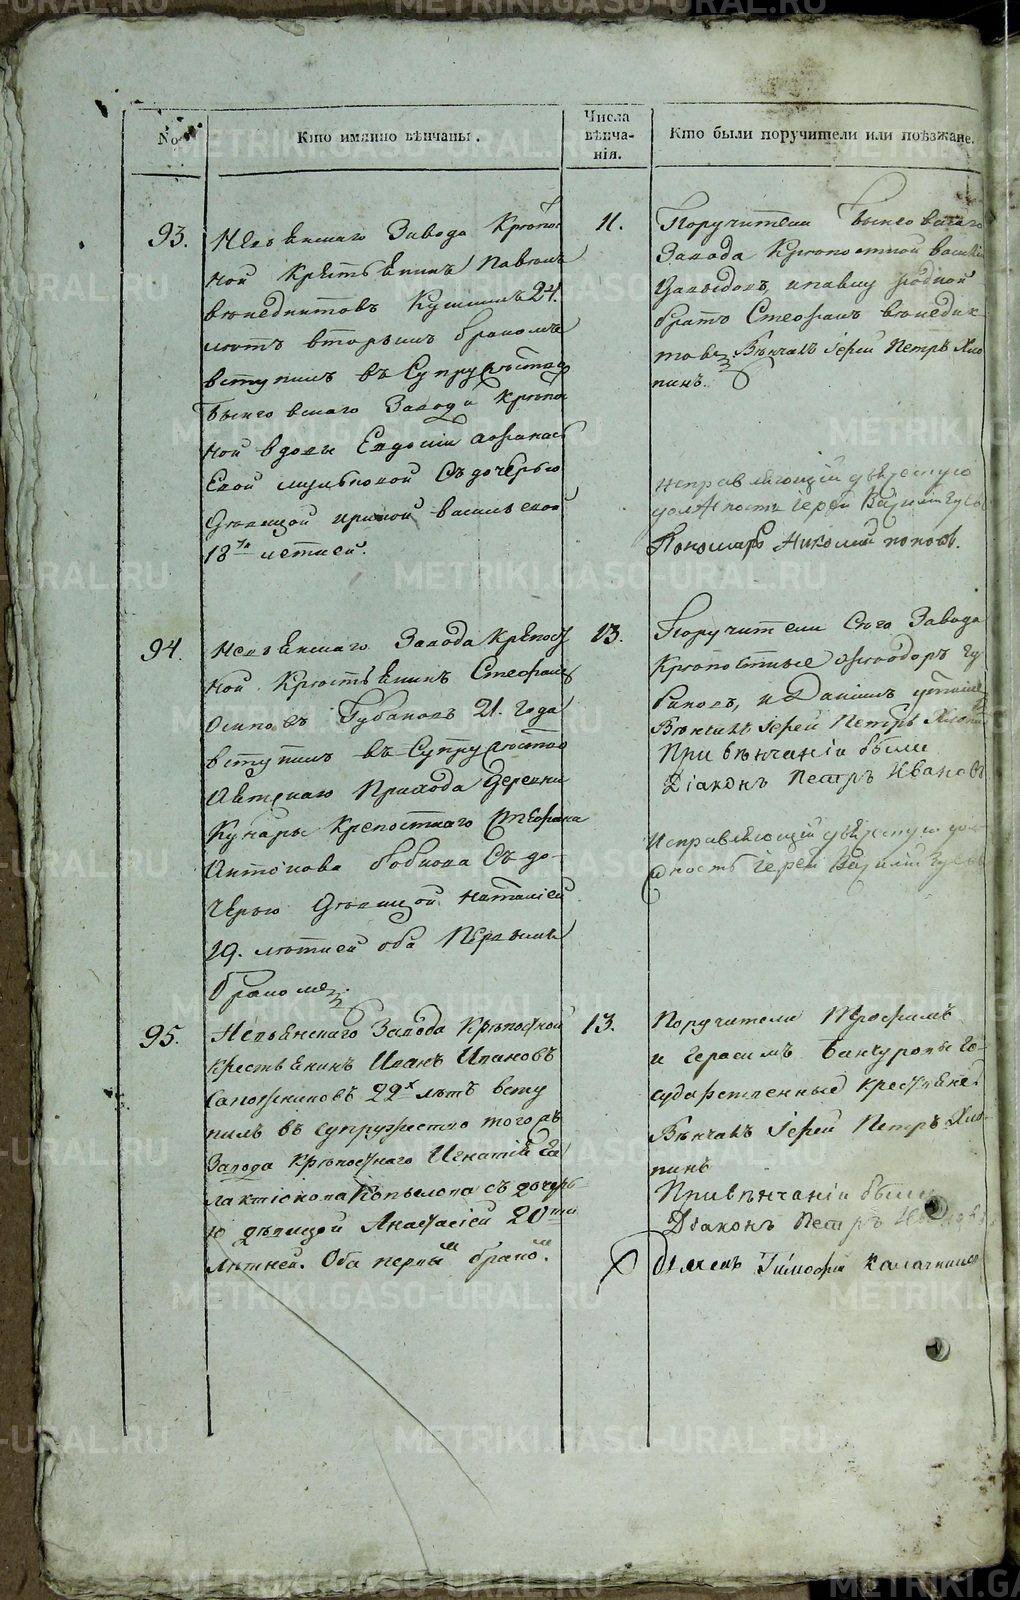 №
Кто имянно вѣнчаны.
Числа
вѣнча-
нія.
Кто были поручители или поѣзжане.
93.
Невьянскаго Завода Крѣпос
ной Крестьянинъ Павелъ
24.
летъ вторымъ бракомъ
вступилъ въ Супружество
Быньговскаго Завода Крѣпос
ной вдовы Евдокіи Афанась
евой съ дочерью
девицой Васильевой
18ти летней.
11.
Поручители Быньговскаго
Завода Крепостной Василій
родной
братъ Стефанъ Венедик
товъ Вѣнчалъ Іерей Петръ Хло
пинъ.
Исправляющій дьяческую
должность Іерей Василій
Пономарь Николай Поповъ.
94.
Невьянскаго Завода Крепост
ной Крестьянинъ Стефанъ
Осиповъ Губановъ 21. года
вступилъ въ Супружество
Прихода Деревни
Кунары Крепостнаго Стефана
Антонова съ до-
черью Девицой Наталіей
19. летней оба Первымъ
бракомъ.
13.
Поручители Сего Завода
Крепостные Феодоръ Гу
бановъ, и Даніилъ
Вѣнчалъ Іерей Петръ Хлопинъ
При вѣнчаніи были
Діаконъ Петръ Ивановъ
Исправляющій дьяческую дол
жность Іерей Василій
95.
Невьянскаго Завода Крѣпостной
Крестьянинъ Иванъ Ивановъ
Сапожниковъ 22х лѣтъ всту
пилъ въ супружество того жъ
Завода Крѣпостнаго Игнатія Га
лактіонова Копылова съ дочерь
ю дѣвицей Анастасіей 20ти
лѣтней. Оба первымъ бракомъ.
13.
Поручители Трофимъ
и Герасимъ Го-
сударственные крестьяне.
Вѣнчалъ Іерей Петръ Хло-
пинъ
При вѣнчаніи были
Діаконъ Петръ Ивановъ
Тимофей Калачниковъ
METRIKI.GASO-URAL.RU